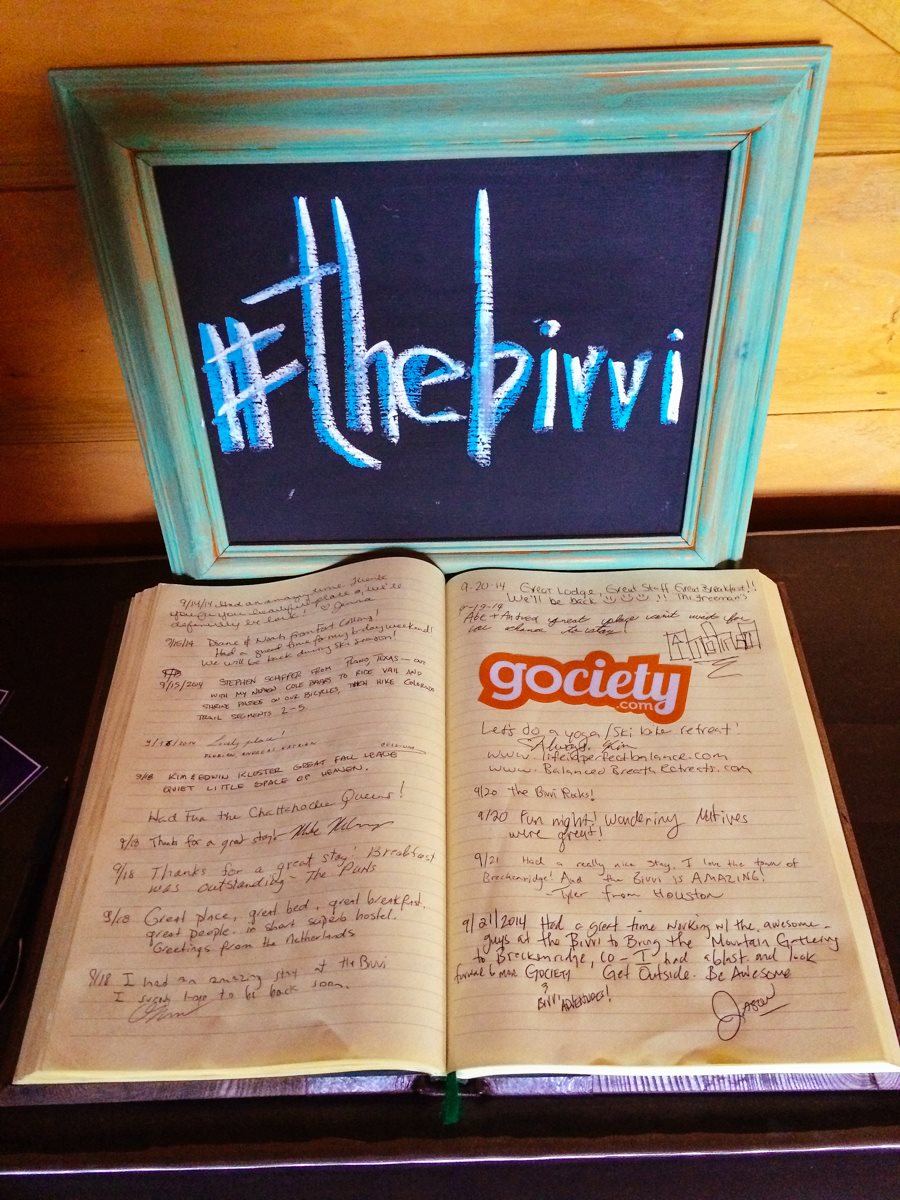 #thebivvi
9/14/14 Had an amazing time. Thank
you for your beautiful place &, we'll
definitely be back! ♡ Jenna
9/15/14 Diane & Noah from Fort Collins!
Had a great time for my b-day weekend!
We will be back during ski season!
9/15/2014 STEPHEN SCHAFFER FROM PLANO, TEXAS — OUT
WITH MY NEPHEW COLE BATES TO RIDE VAIL AND
SHRINE PASSES ON OUR BICYCLES, THEN HIKE COLORADO
TRAIL SEGMENTS 2-5.
Lovely place!
9/18 KIM & EDWIN KLUSTER GREAT FALL LEAVE
QUIET LITTLE SPACE OF HEAVEN.
Had fun the Chattahoochee Queens!
9/18 Thanks for a great stay!
9/18 Thanks for a great stay! Breakfast
was outstanding - The
9/18 Great place, great bed, great breakfast.
great people. in short superb hostel.
Greetings from the Netherlands
9/18 I had an amazing stay at the Bivvi
I surely hope to be back soon.
9-20-14 Great Lodge, Great Staff Great Breakfast!!
We'll be back ☺ ☺ ☺ !! The Freeman's
9-19-14
Abe + Andrea great place can't wait for
gociety
.com
Let's do a yoga/ski bike retreat!
www.lifeisperfectbalance.com
www.BalancedBreathRetreats.com
9/20 The Bivvi Rocks!
9/20 Fun night! Wandering Natives
were great!
9/21 Had a really nice stay, I love the town of
Breckenridge! And the Bivvi is AMAZING!
- Tyler from Houston
9/21/2014 Had a great time working w/ the awesome
guys at the Bivvi to Bring the Mountain Gathering
to Breckenridge, CO - I had a blast and look
forward to more GOCIETY Get Outside. Be Awesome
& BIVVI ADVENTURES!
Jason